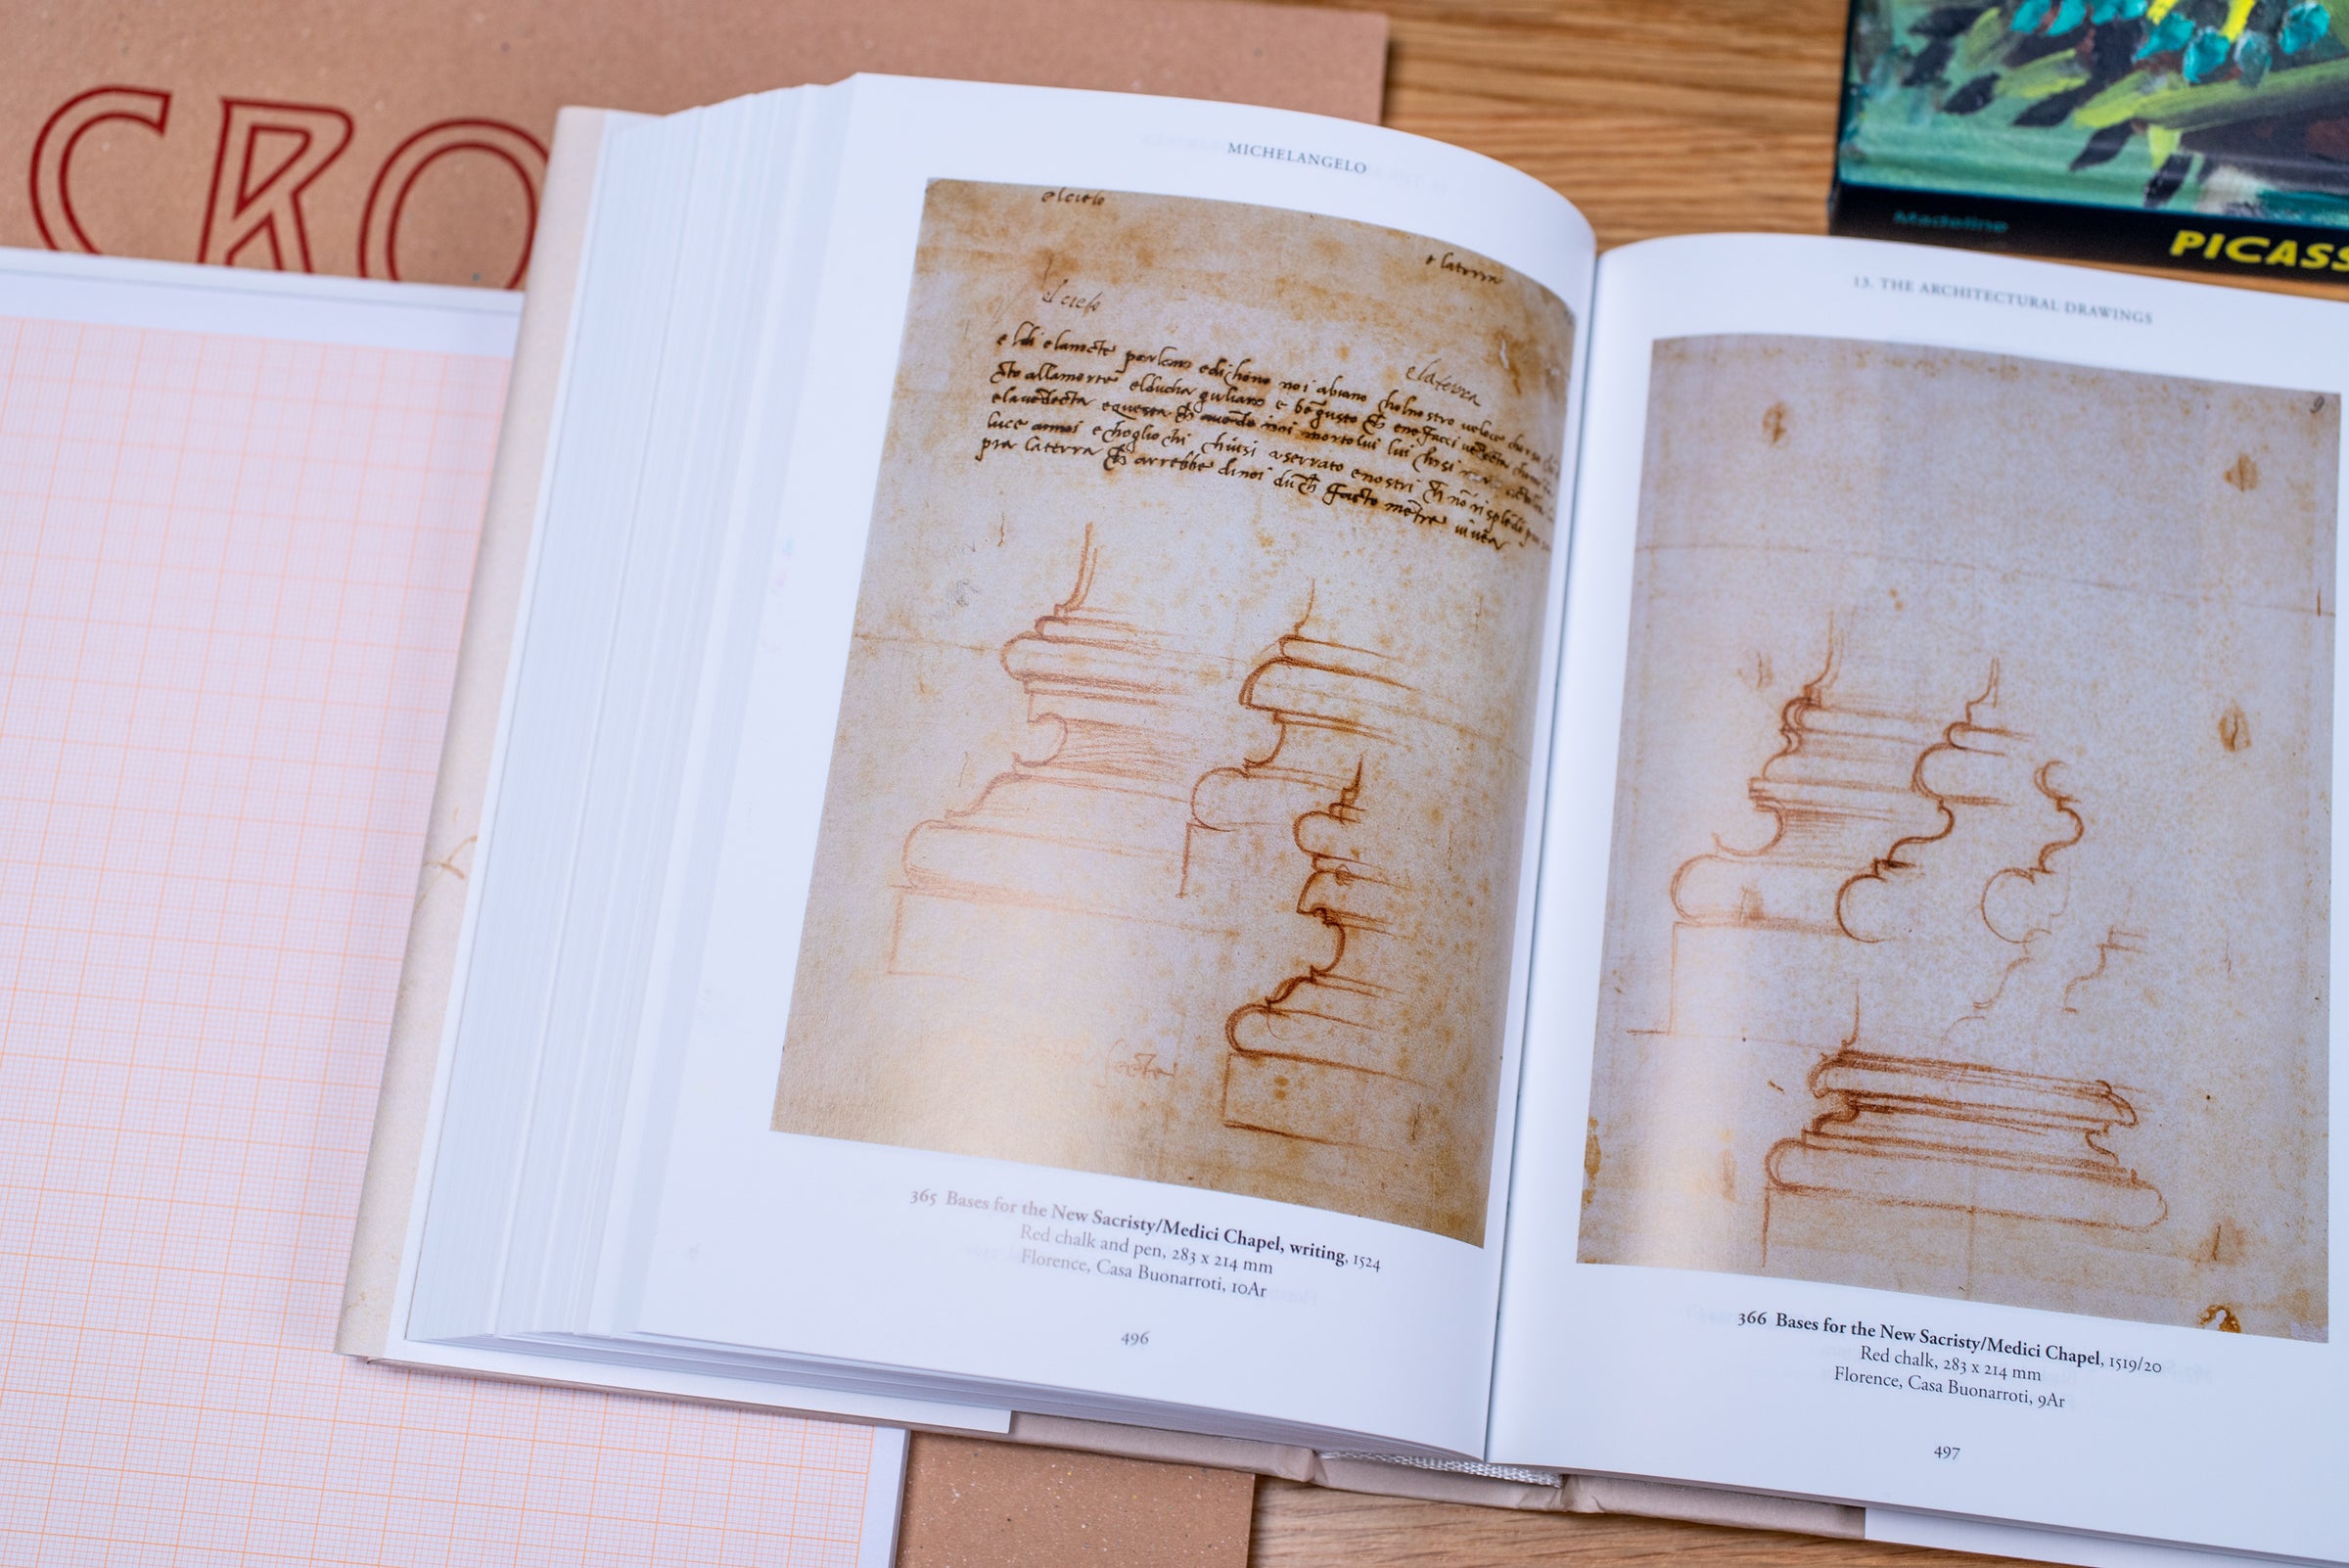 CRO
Madeline
PICASS
MICHELANGELO
el cielo
e la terra
el cielo
e la terra
el di e la nocte parlano e dichono noi abiano chol nostro veloce
sto alla morte el ducha guliano e be gusto che ne facci vedecta
e la vedecta e questa che avendo noi morto lui lui chosi
luce a noi e chogli ochi chiusi a serrato e nostri che no risplēdō
pra la terra che arrebbe di noi duch facto mētre vivea
365 Bases for the New Sacristy/Medici Chapel, writing, 1524
Red chalk and pen, 283 x 214 mm
Florence, Casa Buonarroti, 10Ar
496
13. THE ARCHITECTURAL DRAWINGS
9
366 Bases for the New Sacristy/Medici Chapel, 1519/20
Red chalk, 283 x 214 mm
Florence, Casa Buonarroti, 9Ar
497